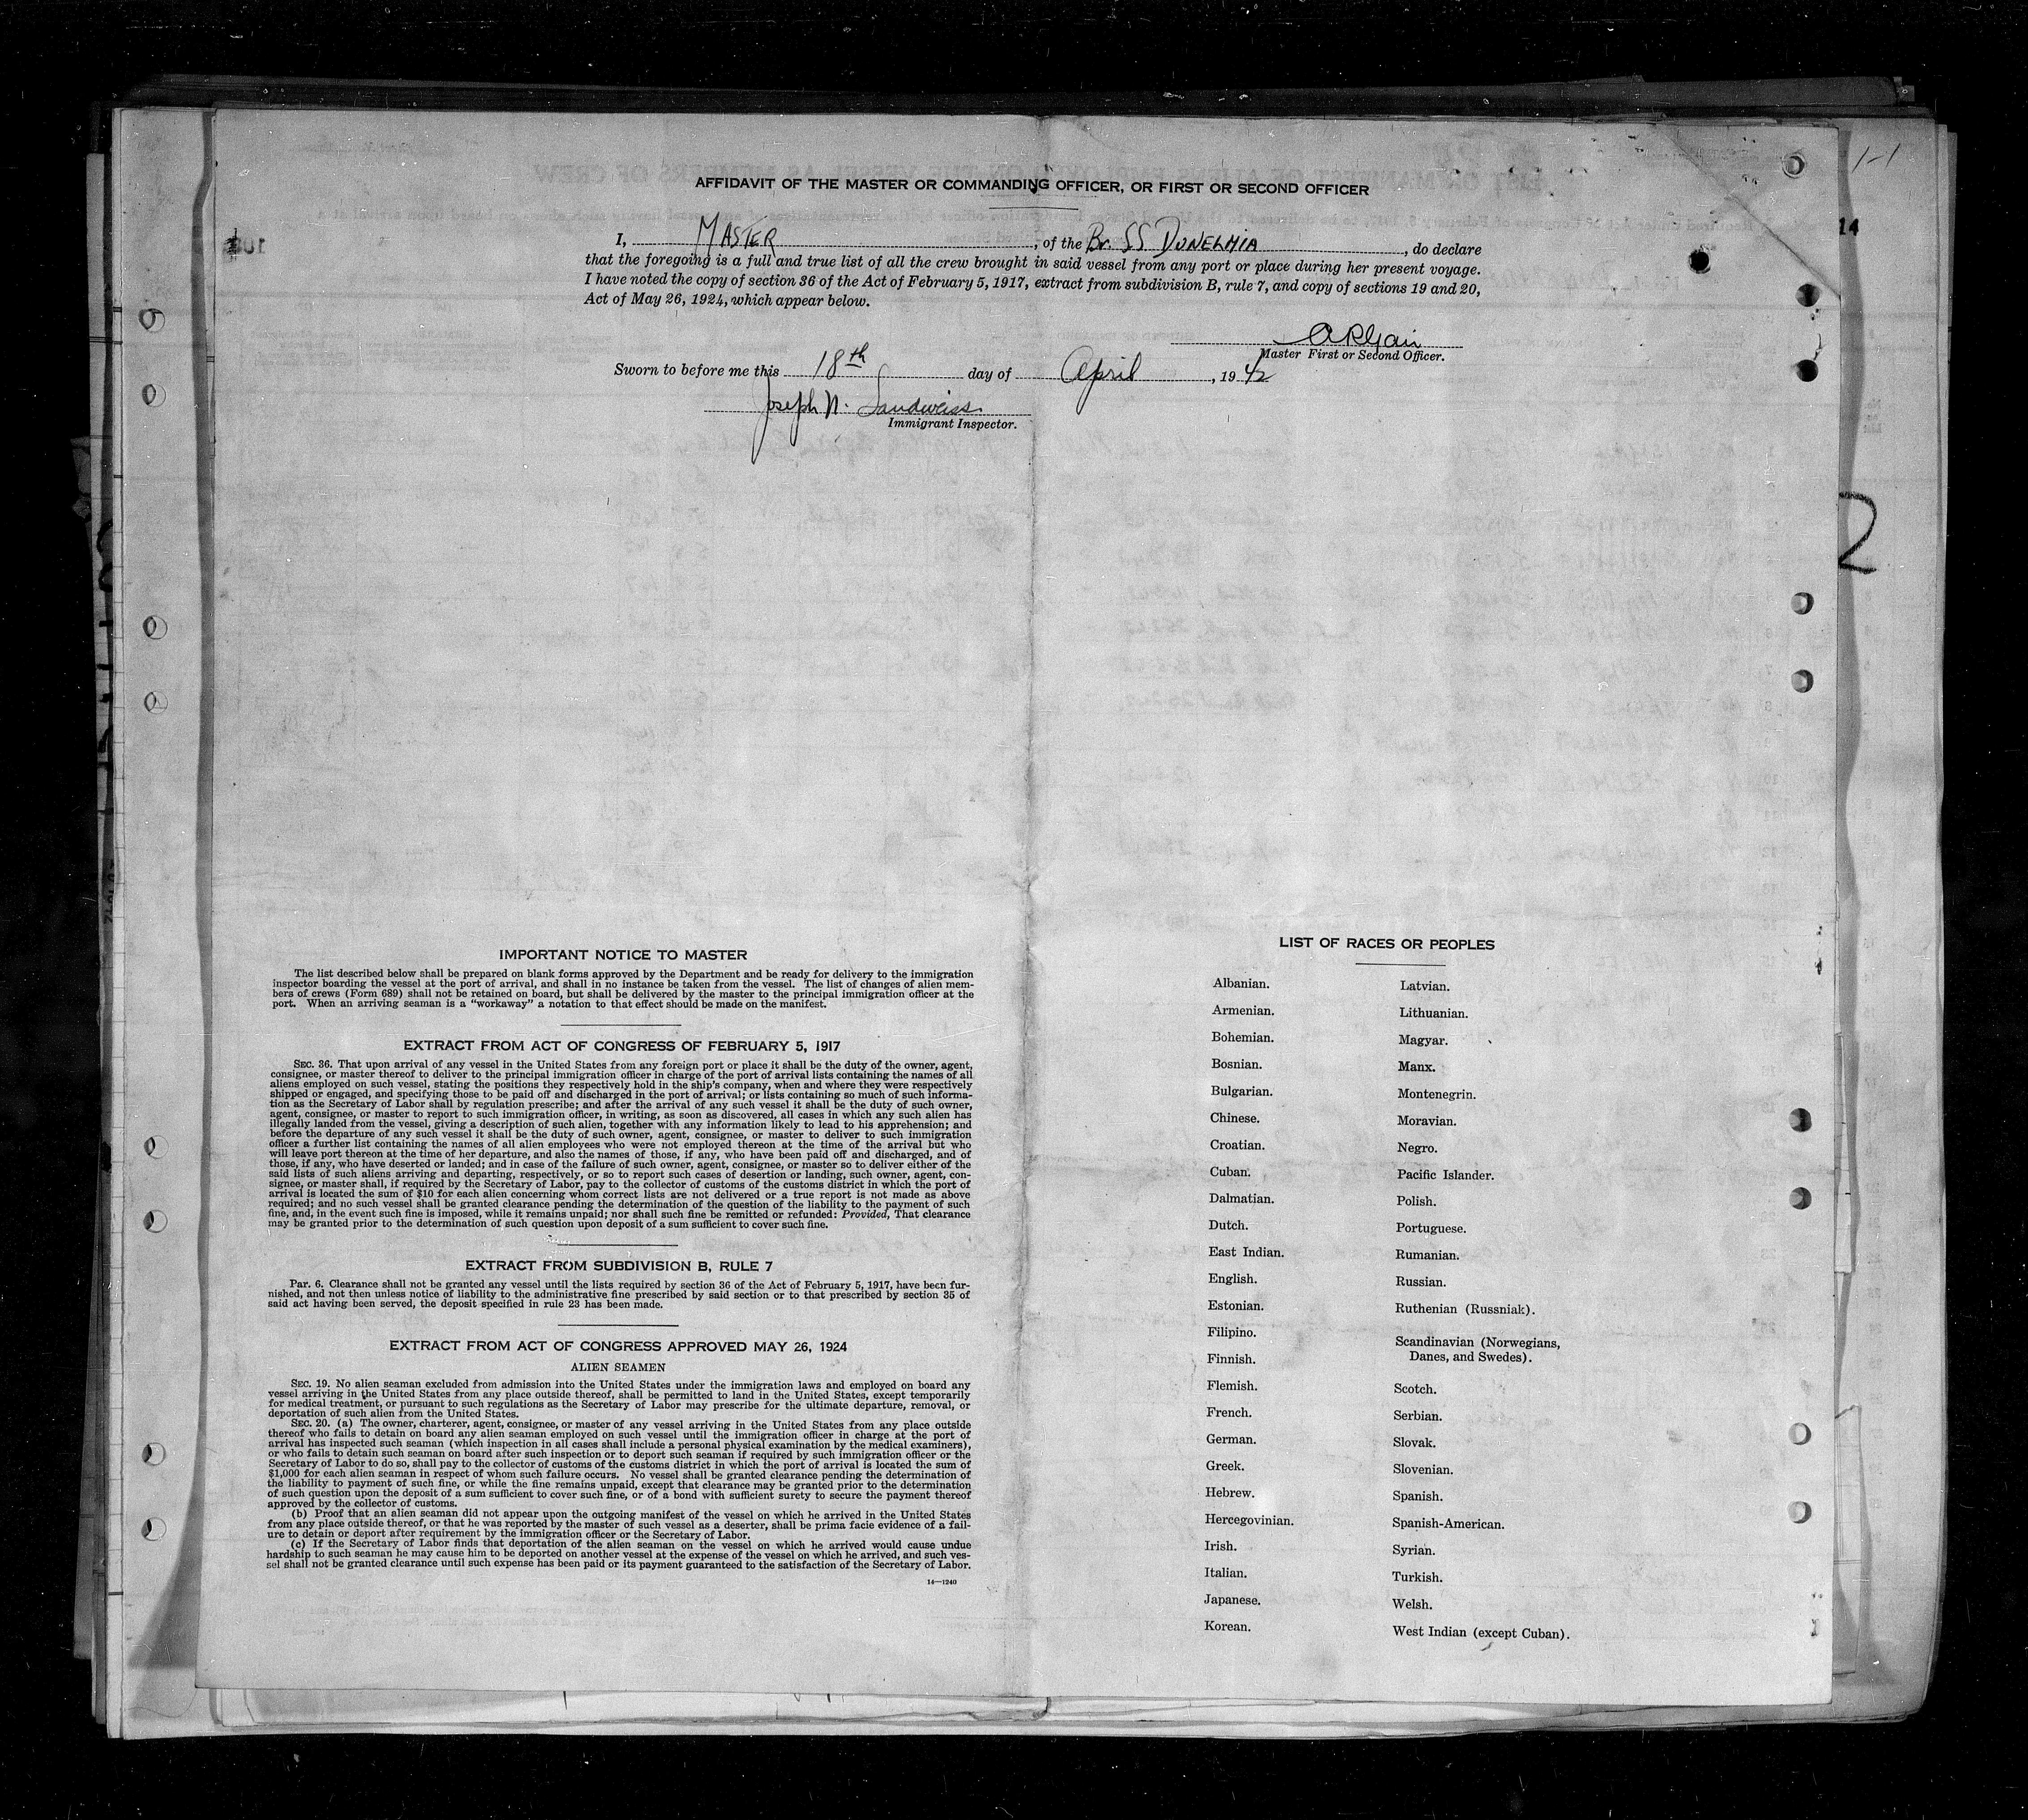 AFFIDAVIT OF THE MASTER OR COMMANDING OFFICER, OR FIRST OR SECOND OFFICER
I, MASTER, of the Br. SS DUNELMIA, do declare
that the foregoing is a full and true list of all the crew brought in said vessel from any port or place during her present voyage.
I have noted the copy of section 36 of the Act of February 5, 1917, extract from subdivision B, rule 7, and copy of sections 19 and 20,
Act of May 26, 1924, which appear below.
Master First or Second Officer.
Sworn to before me this 18th day of April, 1942
Joseph N. Sandweiss
Immigrant Inspector.
1-1
14
2
IMPORTANT NOTICE TO MASTER
The list described below shall be prepared on blank forms approved by the Department and be ready for delivery to the immigration
inspector boarding the vessel at the port of arrival, and shall in no instance be taken from the vessel. The list of changes of alien mem-
bers of crews (Form 689) shall not be retained on board, but shall be delivered by the master to the principal immigration officer at the
port. When an arriving seaman is a "workaway" a notation to that effect should be made on the manifest.
EXTRACT FROM ACT OF CONGRESS OF FEBRUARY 5, 1917
SEC. 36. That upon arrival of any vessel in the United States from any foreign port or place it shall be the duty of the owner, agent,
consignee, or master thereof to deliver to the principal immigration officer in charge of the port of arrival lists containing the names of all
aliens employed on such vessel, stating the positions they respectively hold in the ship's company, when and where they were respectively
shipped or engaged, and specifying those to be paid off and discharged in the port of arrival; or lists containing so much of such informa-
tion as the Secretary of Labor shall by regulation prescribe; and after the arrival of any such vessel it shall be the duty of such owner,
agent, consignee, or master to report to such immigration officer, in writing, as soon as discovered, all cases in which any such alien has
illegally landed from the vessel, giving a description of such alien, together with any information likely to lead to his apprehension; and
before the departure of any such vessel it shall be the duty of such owner, agent, consignee, or master to deliver to such immigration
officer a further list containing the names of all alien employees who were not employed thereon at the time of the arrival but who
will leave port thereon at the time of her departure, and also the names of those, if any, who have been paid off and discharged, and of
those, if any, who have deserted or landed; and in case of the failure of such owner, agent, consignee, or master so to deliver either of the
said lists of such aliens arriving and departing, respectively, or so to report such cases of desertion or landing, such owner, agent, con-
signee, or master shall, if required by the Secretary of Labor, pay to the collector of customs of the customs district in which the port of
arrival is located the sum of $10 for each alien concerning whom correct lists are not delivered or a true report is not made as above
required; and no such vessel shall be granted clearance pending the determination of the question of the liability to the payment of such
fine, and, in the event such fine is imposed, while it remains unpaid; nor shall such fine be remitted or refunded: Provided, That clearance
may be granted prior to the determination of such question upon deposit of a sum sufficient to cover such fine.
EXTRACT FROM SUBDIVISION B, RULE 7
Par. 6. Clearance shall not be granted any vessel until the lists required by section 36 of the Act of February 5, 1917, have been fur-
nished, and not then unless notice of liability to the administrative fine prescribed by said section or to that prescribed by section 35 of
said act having been served, the deposit specified in rule 23 has been made.
EXTRACT FROM ACT OF CONGRESS APPROVED MAY 26, 1924
ALIEN SEAMEN
SEC. 19. No alien seaman excluded from admission into the United States under the immigration laws and employed on board any
vessel arriving in the United States from any place outside thereof, shall be permitted to land in the United States, except temporarily
for medical treatment, or pursuant to such regulations as the Secretary of Labor may prescribe for the ultimate departure, removal, or
deportation of such alien from the United States.
SEC. 20. (a) The owner, charterer, agent, consignee, or master of any vessel arriving in the United States from any place outside
thereof who fails to detain on board any alien seaman employed on such vessel until the immigration officer in charge at the port of
arrival has inspected such seaman (which inspection in all cases shall include a personal physical examination by the medical examiners),
or who fails to detain such seaman on board after such inspection or to deport such seaman if required by such immigration officer or the
Secretary of Labor to do so, shall pay to the collector of customs of the customs district in which the port of arrival is located the sum of
$1,000 for each alien seaman in respect of whom such failure occurs. No vessel shall be granted clearance pending the determination of
the liability to payment of such fine, or while the fine remains unpaid, except that clearance may be granted prior to the determination
of such question upon the deposit of a sum sufficient to cover such fine, or of a bond with sufficient surety to secure the payment thereof
approved by the collector of customs.
(b) Proof that an alien seaman did not appear upon the outgoing manifest of the vessel on which he arrived in the United States
from any place outside thereof, or that he was reported by the master of such vessel as a deserter, shall be prima facie evidence of a fail-
ure to detain or deport after requirement by the immigration officer or the Secretary of Labor.
(c) If the Secretary of Labor finds that deportation of the alien seaman on the vessel on which he arrived would cause undue
hardship to such seaman he may cause him to be deported on another vessel at the expense of the vessel on which he arrived, and such ves-
sel shall not be granted clearance until such expense has been paid or its payment guaranteed to the satisfaction of the Secretary of Labor.
14—1240
LIST OF RACES OR PEOPLES
Albanian.
Armenian.
Bohemian.
Bosnian.
Bulgarian.
Chinese.
Croatian.
Cuban.
Dalmatian.
Dutch.
East Indian.
English.
Estonian.
Filipino.
Finnish.
Flemish.
French.
German.
Greek.
Hebrew.
Hercegovinian.
Irish.
Italian.
Japanese.
Korean.
Latvian.
Lithuanian.
Magyar.
Manx.
Montenegrin.
Moravian.
Negro.
Pacific Islander.
Polish.
Portuguese.
Rumanian.
Russian.
Ruthenian (Russniak).
Scandinavian (Norwegians,
Danes, and Swedes).
Scotch.
Serbian.
Slovak.
Slovenian.
Spanish.
Spanish-American.
Syrian.
Turkish.
Welsh.
West Indian (except Cuban).